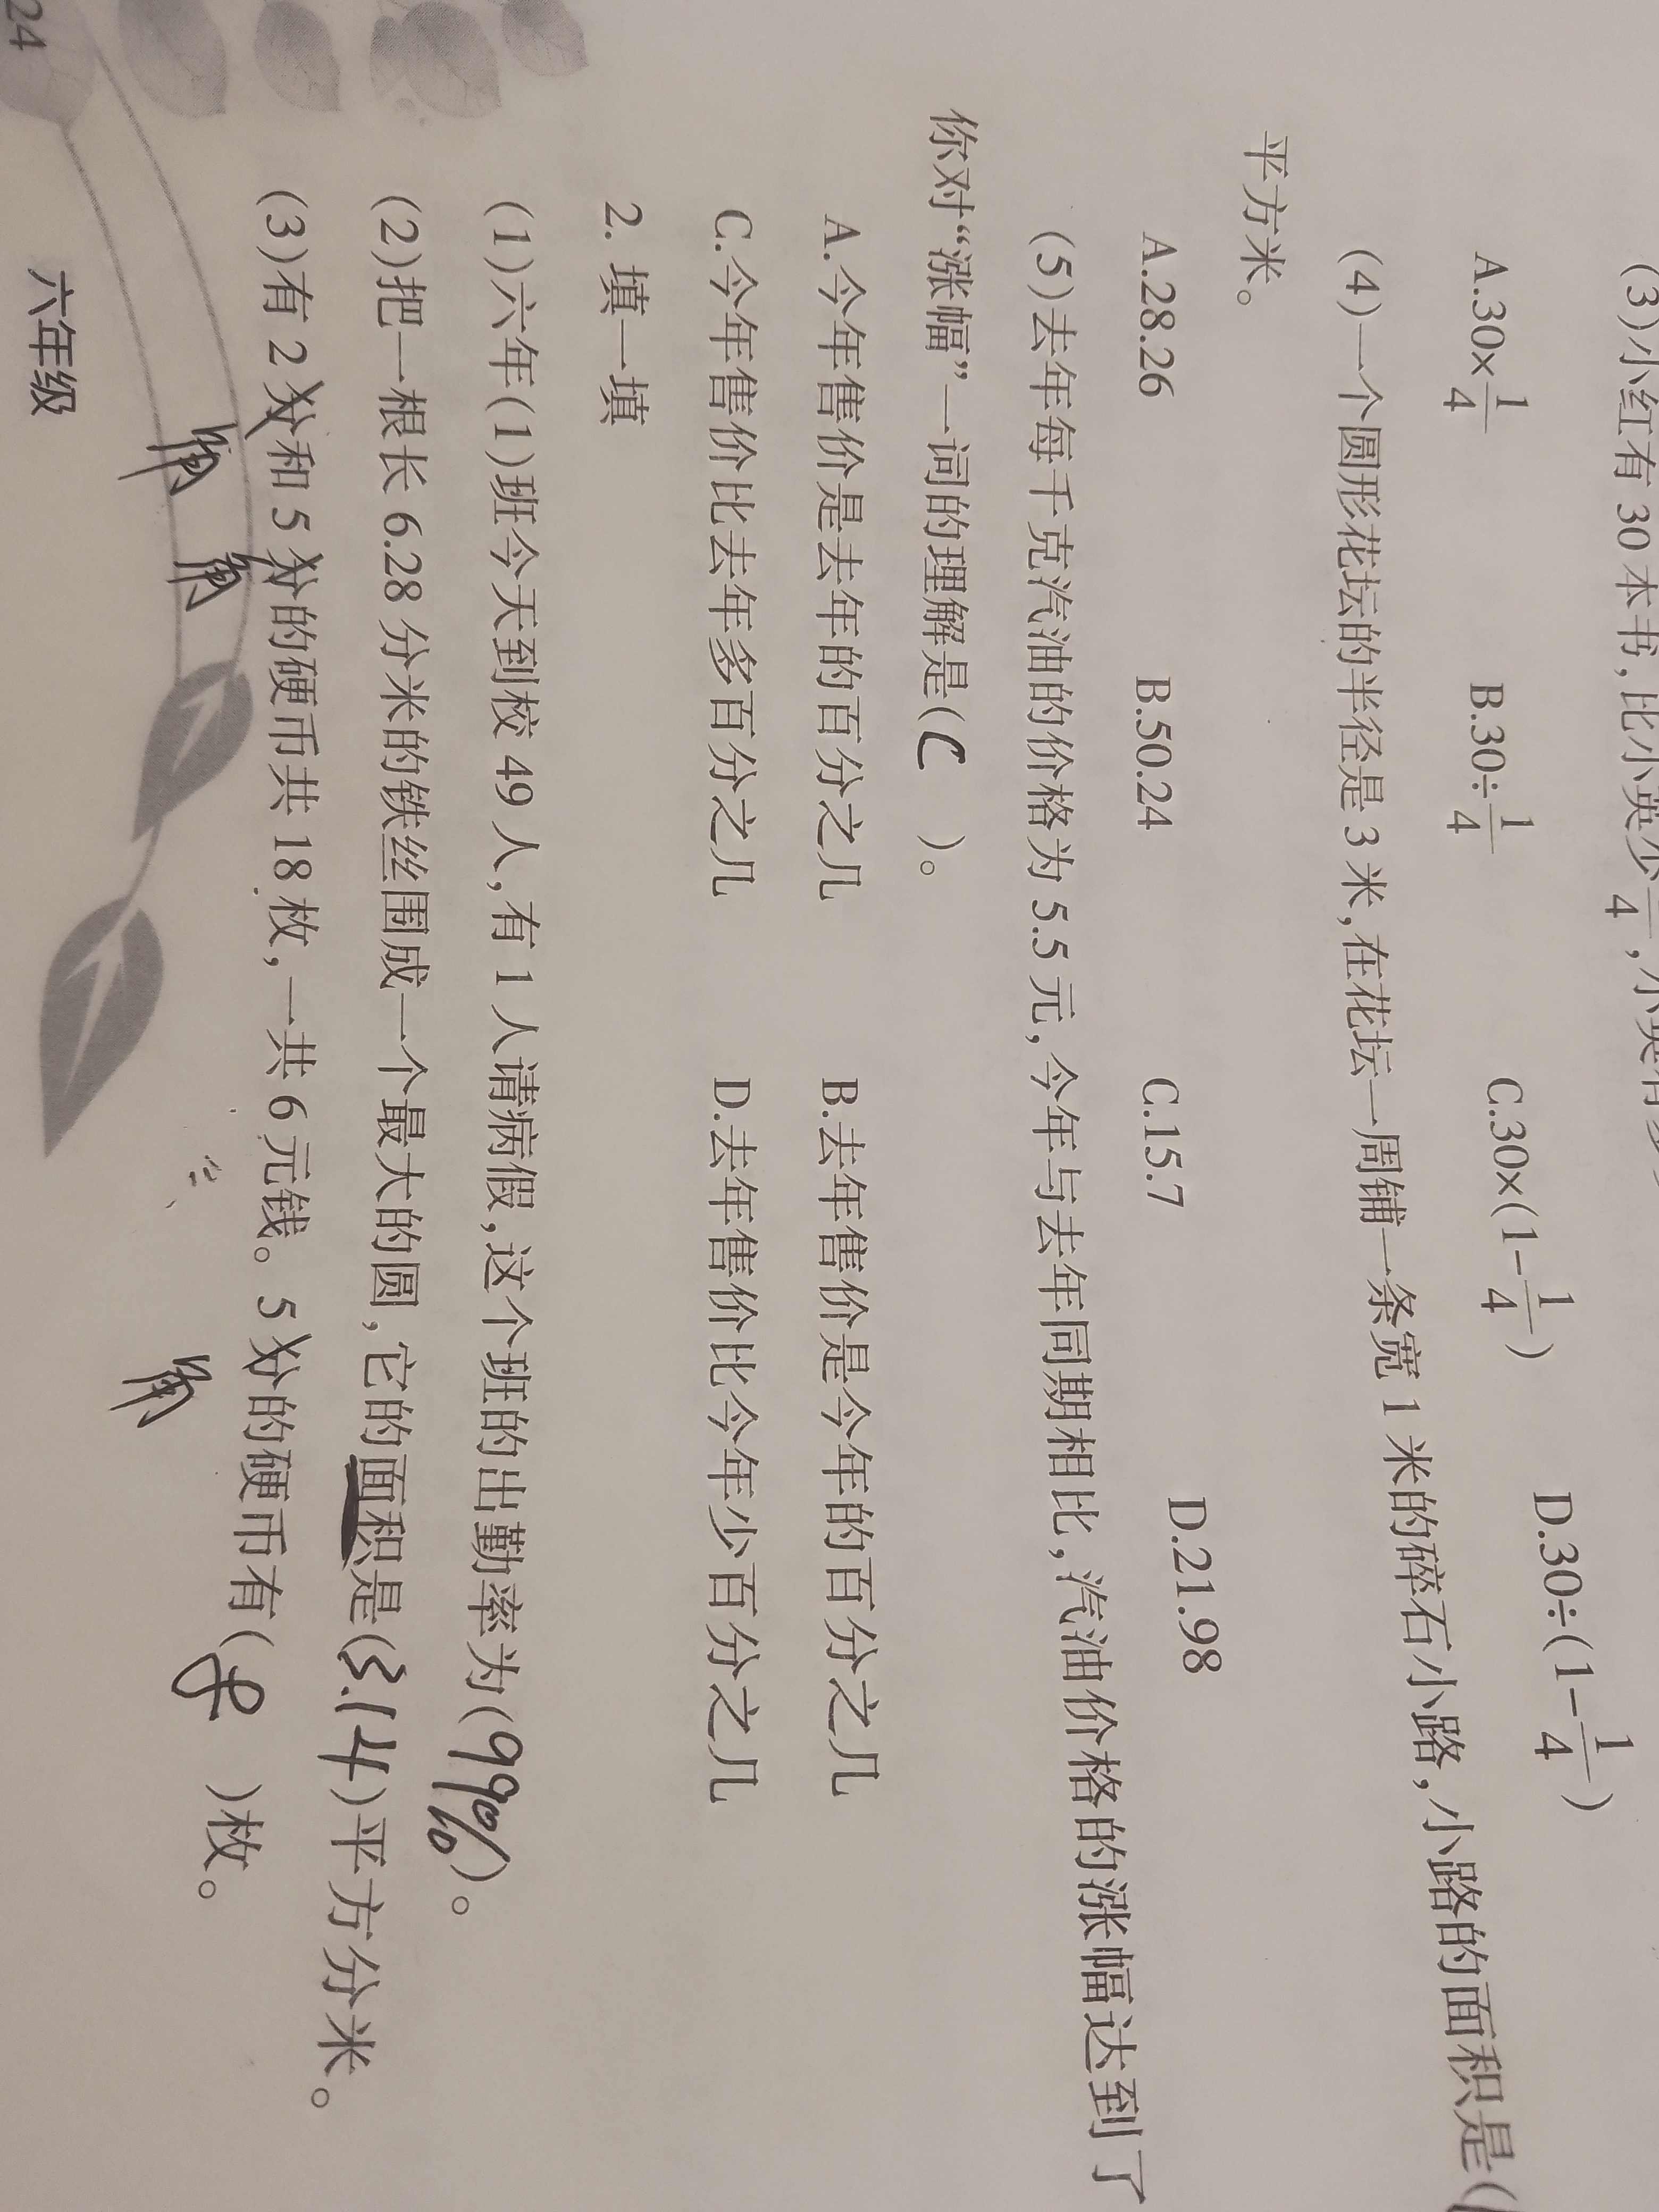 (3)小红有30本书,比小英少 /4,小英有多
A.30×1/4 B.30÷1/4 C.30×(1-1/4) D.30÷(1-1/4)
(4)一个圆形花坛的半径是3米,在花坛一周铺一条宽1米的碎石小路,小路的面积是(
平方米。
A.28.26 B.50.24 C.15.7 D.21.98
(5)去年每千克汽油的价格为5.5元,今年与去年同期相比,汽油价格的涨幅达到了
你对“涨幅”一词的理解是(C)。
A.今年售价是去年的百分之几 B.去年售价是今年的百分之几
C.今年售价比去年多百分之几 D.去年售价比今年少百分之几
2.填一填
(1)六年(1)班今天到校49人,有1人请病假,这个班的出勤率为(99%)。
(2)把一根长6.28分米的铁丝围成一个最大的圆,它的面积是(3.14)平方分米。
(3)有2分和5分的硬币共18枚,一共6元钱。5分的硬币有( )枚。
角 角 角
24 六年级